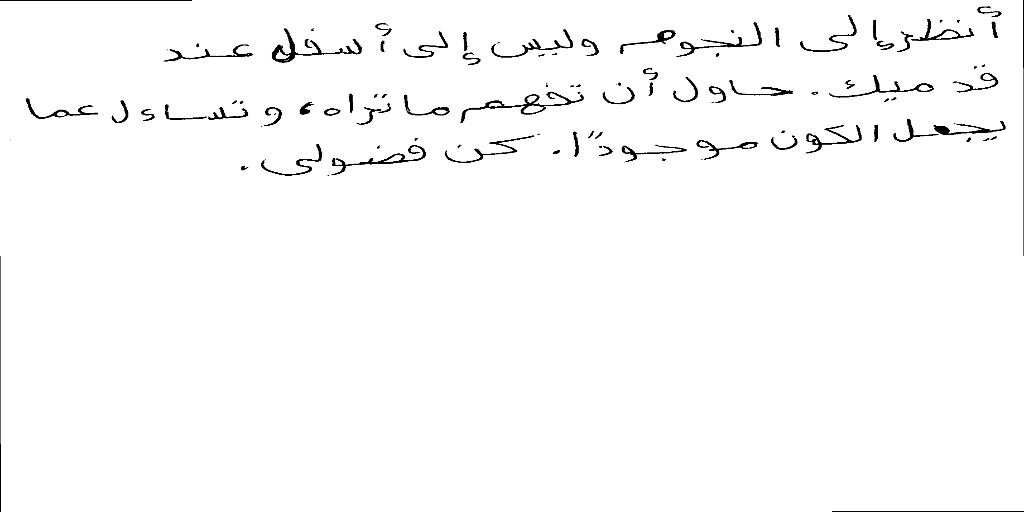 أنظر إلى النجوم وليس إلى أسفل عند
قدميك. حاول أن تفهم ما تراه، وتساءل عما
يجعل الكون موجودًا. كن فضولى.